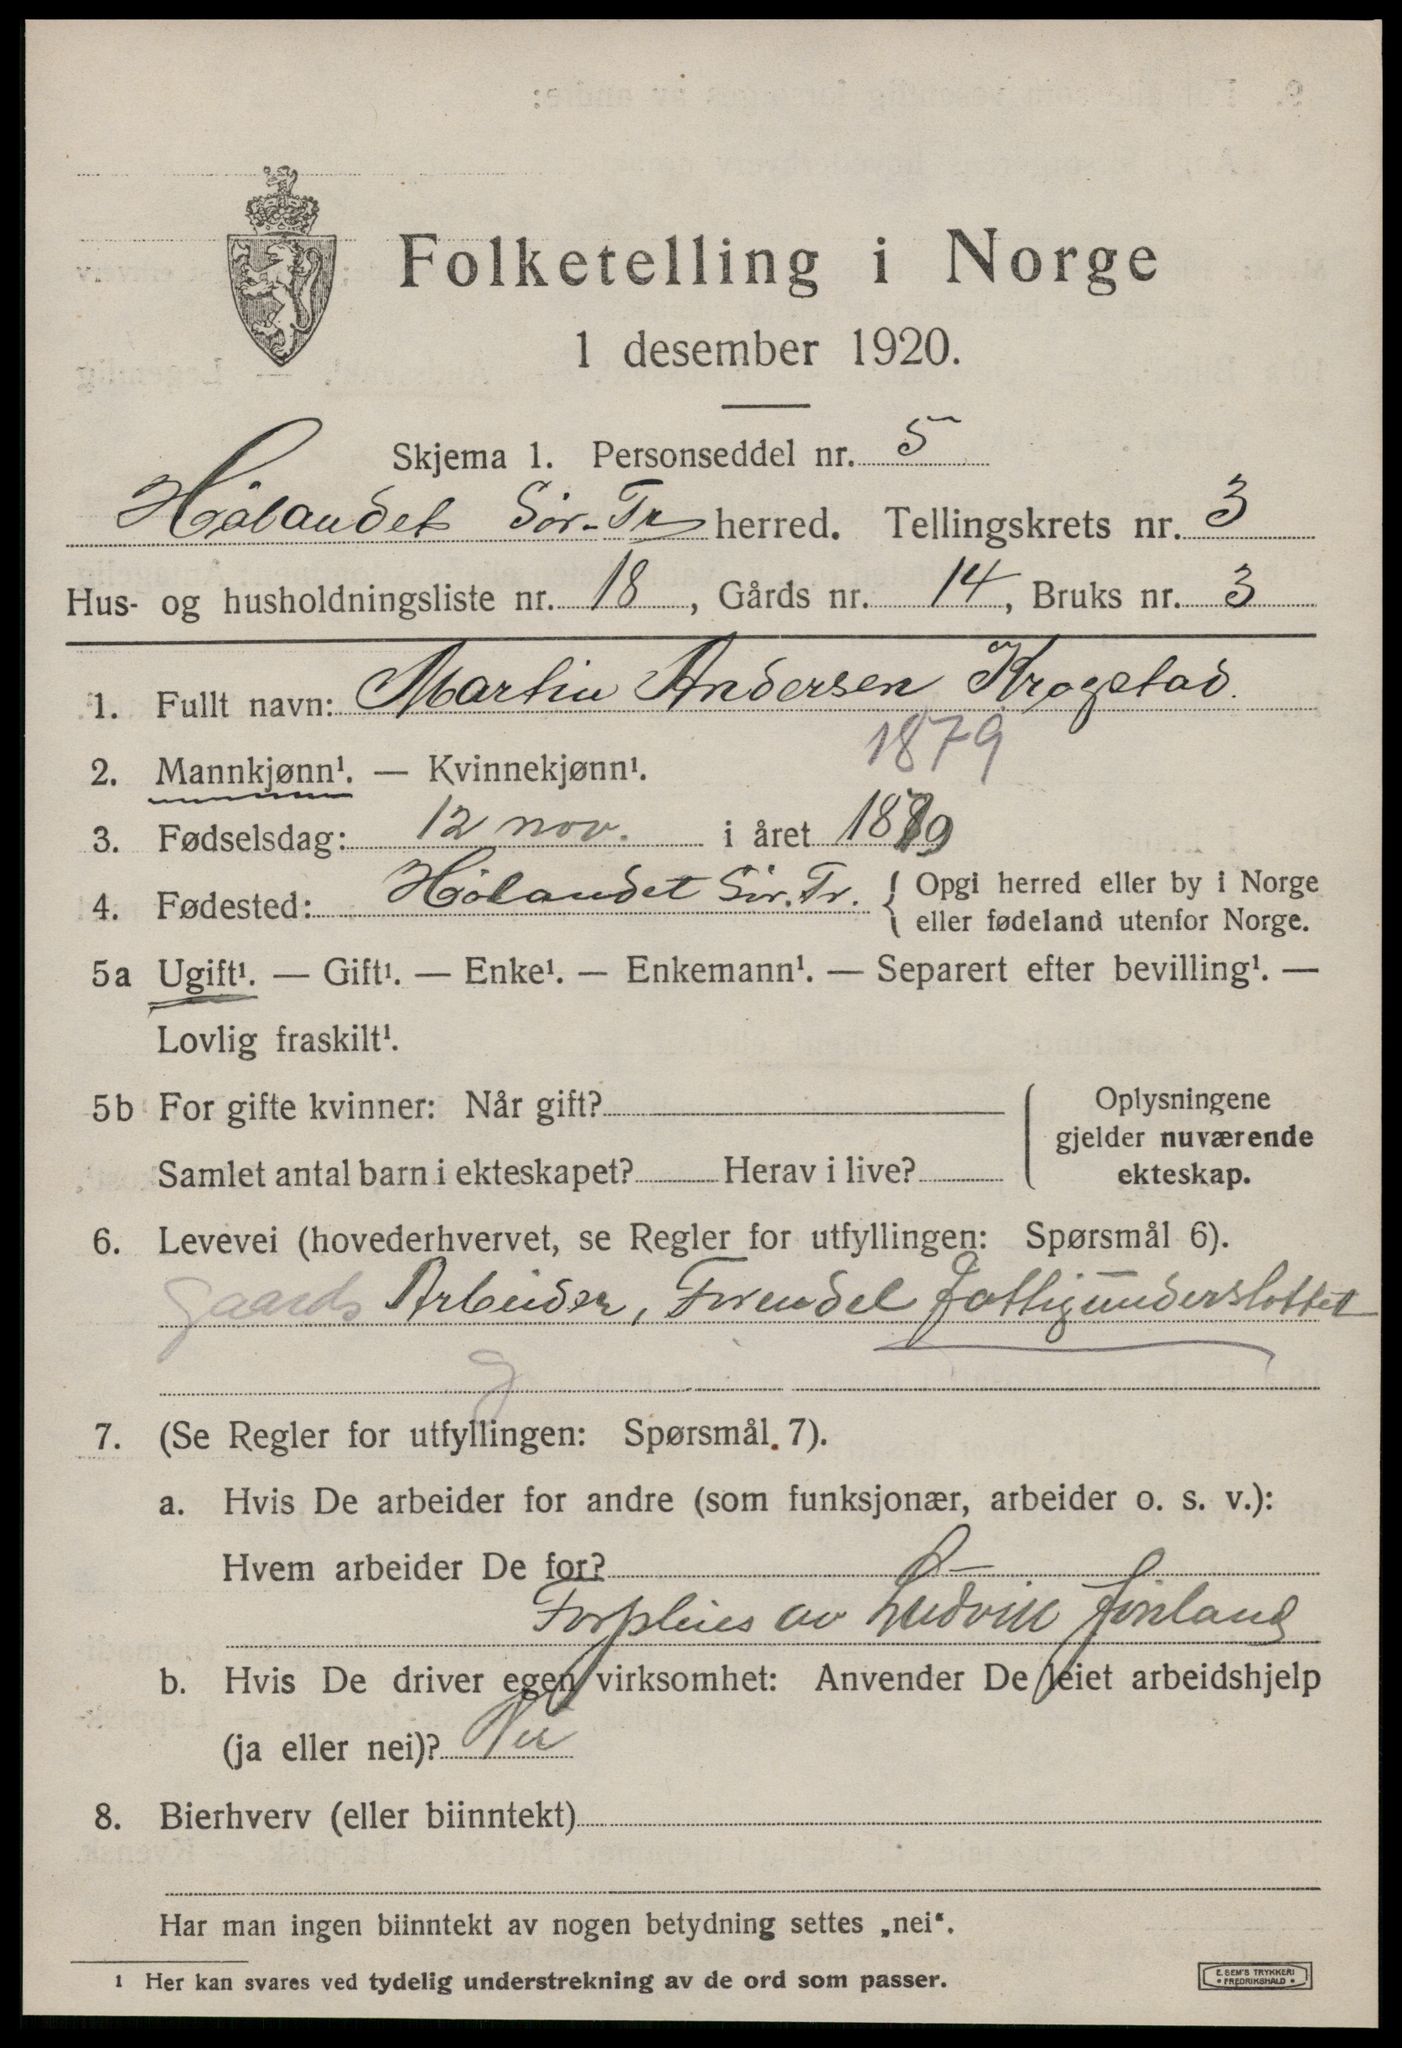 Folketelling i Norge
1 desember 1920.
Skjema 1. Personseddel nr. 5
Hølandet Sør-Tr herred. Tellingskrets nr. 3
Hus- og husholdningsliste nr. 18, Gårds nr. 14, Bruks nr. 3
1. Fullt navn: Martin Andersen Krogstad.
1879
2. Mannkjønn¹. — Kvinnekjønn¹.
3. Fødselsdag: 12 nov. i året 1879
4. Fødested: Hølandet Sør. Tr. { Opgi herred eller by i Norge
eller fødeland utenfor Norge.
5a Ugift¹. — Gift¹. — Enke¹. — Enkemann¹. — Separert efter bevilling¹. —
Lovlig fraskilt¹.
5b For gifte kvinner: Når gift?
Samlet antal barn i ekteskapet? Herav i live?
Oplysningene
gjelder nuværende
ekteskap.
6. Levevei (hovederhvervet, se Regler for utfyllingen: Spørsmål 6).
gaards Arbeider, Fremdel fattigunderstøttet
g
7. (Se Regler for utfyllingen: Spørsmål 7).
a. Hvis De arbeider for andre (som funksjonær, arbeider o. s. v.):
Hvem arbeider De for?
Forpleies av Ludvik
b. Hvis De driver egen virksomhet: Anvender De leiet arbeidshjelp
(ja eller nei)? Nei
8. Bierhverv (eller biinntekt)
Har man ingen biinntekt av nogen betydning settes „nei“.
¹ Her kan svares ved tydelig understrekning av de ord som passer.
E. SEM'S TRYKKERI
• FREDRIKSHALD •